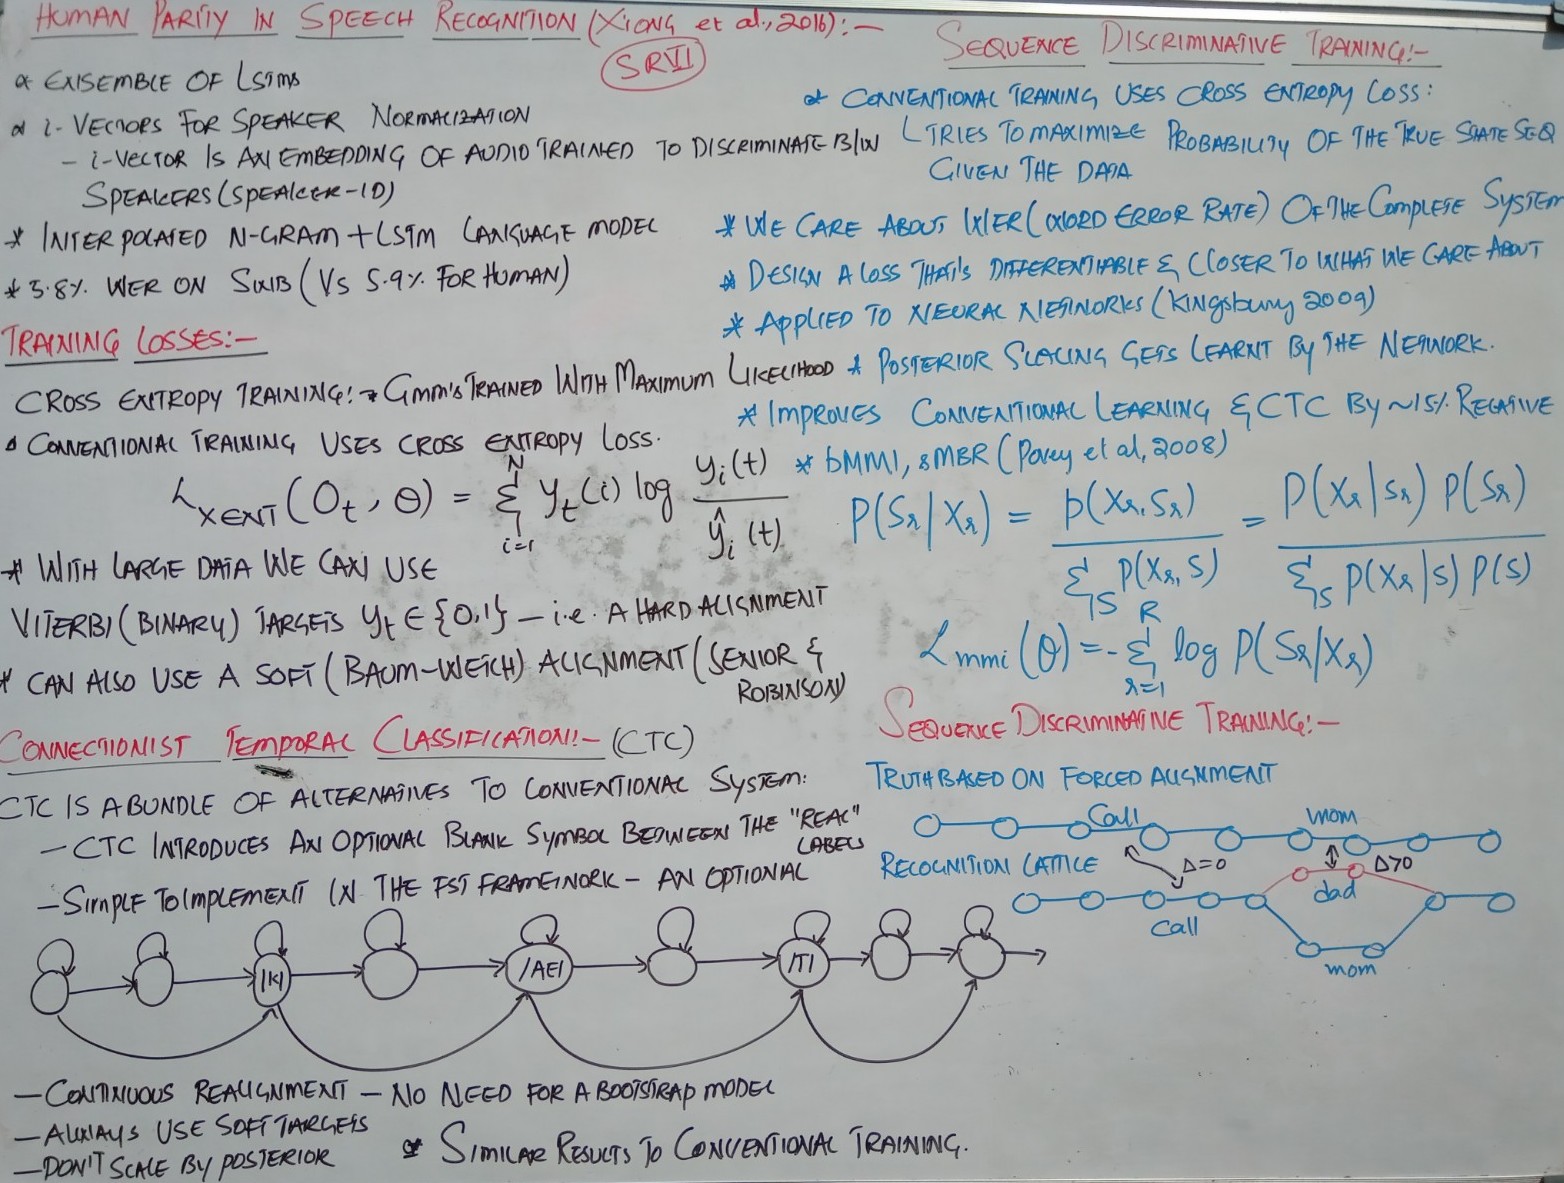 HUMAN PARITY IN SPEECH RECOGNITION (Xiong et al., 2016):-
SRVII
* ENSEMBLE OF LSTMS
* i-VECTORS FOR SPEAKER NORMALIZATION
- i-VECTOR IS AN EMBEDDING OF AUDIO TRAINED TO DISCRIMINATE B/W
SPEAKERS (SPEAKER-ID)
* INTERPOLATED N-GRAM + LSTM LANGUAGE MODEL
* 5.8% WER ON SWB (VS 5.9% FOR HUMAN)
TRAINING LOSSES:-
CROSS ENTROPY TRAINING:→ GMM'S TRAINED WITH MAXIMUM LIKELIHOOD
* CONVENTIONAL TRAINING USES CROSS ENTROPY LOSS.
L_XENT (O_t, θ) = Σ_{i=1}^{N} y_t(i) log y_i(t) / ŷ_i(t)
* WITH LARGE DATA WE CAN USE
VITERBI (BINARY) TARGETS y_t ∈ {0,1} - i.e. A HARD ALIGNMENT
* CAN ALSO USE A SOFT (BAUM-WELCH) ALIGNMENT (SENIOR &
ROBINSON)
CONNECTIONIST TEMPORAL CLASSIFICATION:- (CTC)
CTC IS A BUNDLE OF ALTERNATIVES TO CONVENTIONAL SYSTEM:
- CTC INTRODUCES AN OPTIONAL BLANK SYMBOL BETWEEN THE "REAL"
LABELS
- SIMPLE TO IMPLEMENT IN THE FST FRAMEWORK - AN OPTIONAL
/K/ /AE/ /T/
- CONTINUOUS REALIGNMENT - NO NEED FOR A BOOTSTRAP MODEL
- ALWAYS USE SOFT TARGETS
- DON'T SCALE BY POSTERIOR
* SIMILAR RESULTS TO CONVENTIONAL TRAINING.
SEQUENCE DISCRIMINATIVE TRAINING:-
* CONVENTIONAL TRAINING USES CROSS ENTROPY LOSS:
TRIES TO MAXIMIZE PROBABILITY OF THE TRUE STATE SEQ
GIVEN THE DATA
* WE CARE ABOUT WER (WORD ERROR RATE) OF THE COMPLETE SYSTEM
* DESIGN A LOSS THAT'S DIFFERENTIABLE & CLOSER TO WHAT WE CARE ABOUT
* APPLIED TO NEURAL NETWORKS (Kingsbury 2009)
* POSTERIOR SCALING GETS LEARNT BY THE NETWORK.
* IMPROVES CONVENTIONAL LEARNING & CTC BY ~15% RELATIVE
* bMMI, sMBR (Povey et al, 2008)
P(S_r|X_r) = p(X_r, S_r) / Σ_S P(X_r, S) = P(X_r|S_r) P(S_r) / Σ_S P(X_r|S) P(S)
L_mmi (θ) = - Σ_{r=1}^{R} log P(S_r|X_r)
SEQUENCE DISCRIMINATIVE TRAINING:-
TRUTH BASED ON FORCED ALIGNMENT
Call mom
RECOGNITION LATTICE Δ=0 Δ>0
dad
Call
mom